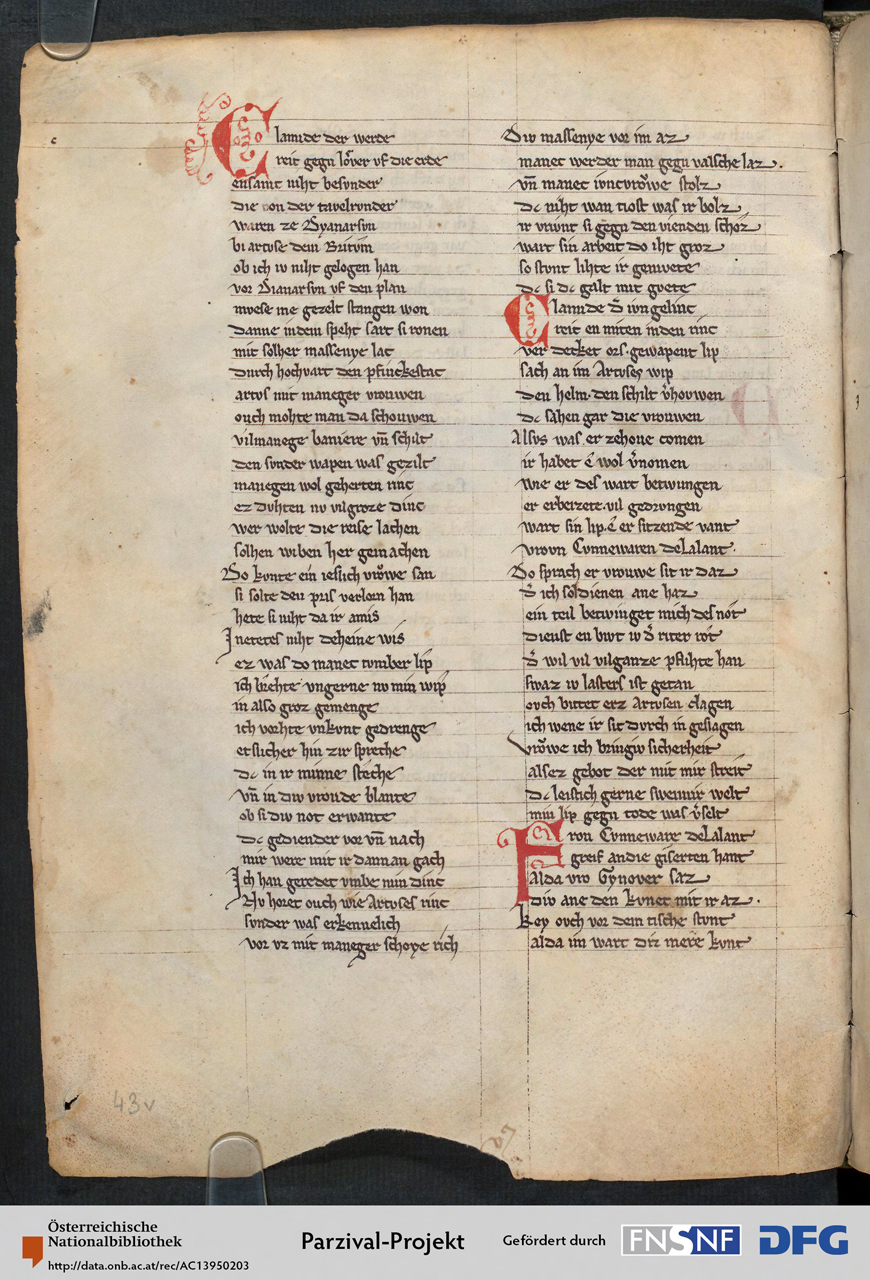 Clamide der werde
reit gegn lover vf die erde
ensamt niht besvnder
die von der tavelrvnder
waren ze Dyanarsvn
bi artvse dem Britvn
ob ich iv niht gelogen han
vor Dianarsvn vf den plan
mvese me gezelt stangen won
danne indem speht sart si ronen
mit solher massenye lac
durch hochvart den pfinckestac
artvs mit maneger vrouwen
ouch mohte man da schouwen
vil manege baniere vn̄ schilt
den svnder wapen was gezilt
manegen wol geherten rinc
ez dvhten nv vil groze dinc
wer wolte die reise lachen
solhen wiben her gemachen
Do kvnte ein ieslich vrowe san
si solte den pris verlorn han
hete si niht da ir amis
Jn netetes niht deheine wis
ez was do manec tvmber lip
ich brehte vngerne nv min wip
in also groz gemenge
ich vorhte vnkvnt gedrenge
etslicher hin zir spreche
dc in ir minne steche
vn̄ in div vroude blante
ob si div not erwante
dc gediender vor vn̄ nach
mir were mit ir dannan gach
Jch han geredet vmbe min dinc
Nv horet ouch wie Artvses rinc
svnder was erkennelich
vor vz mit maneger schoye rich
Div massenye vor im az
manec werder man gegn valsche laz.
vn̄ manec ivncvrowe stolz
dc niht wan tiost was ir bolz
ir vrivnt si gegn den vienden schoz
wart sin arbeit do iht groz
so stvnt lihte ir gemvete
dc si dc galt mit gvete
Clamide d̄ ivngelinc
reit en miten inden rinc
ver decket ors. gewapent lip
sach an im Artvses wip
den helm. den schilt v̄houwen
dc sahen gar die vrouwen
Alsvs was er zehove comen
ir habet ē wol v̄nomen
wie er des wart betwungen
er erbeizete. vil gedrvngen
wart sin lip. ē er sitzende vant
vrovn Cvnnewaren deLalant.
Do sprach er vrouwe sit ir daz
d̄ ich sol dienen ane haz
ein teil betwinget mich des not
dienst en bivt iv d̄ riter rot
d̄ wil vil vil ganze pflihte han
swaz iv lasters ist getan
ovch bittet erz Artvsen clagen
ich wene ir sit dvrch in geslagen
Vrowe ich bringiv sicherheit
als ez gebot der mit mir streit
dc leistich gerne swennir welt
min lip gegn tode was v̄selt
Fron Cvnneware deLalant
greif andie giserten hant
Alda vro Gynover saz
div ane den kvnec mit ir az.
Key ovch vor dem tische stvnt
alda im wart diz mere kvnt
43v
Österreichische
Nationalbibliothek
http://data.onb.ac.at/rec/AC13950203
Parzival-Projekt
Gefördert durch
FNSNF
DFG